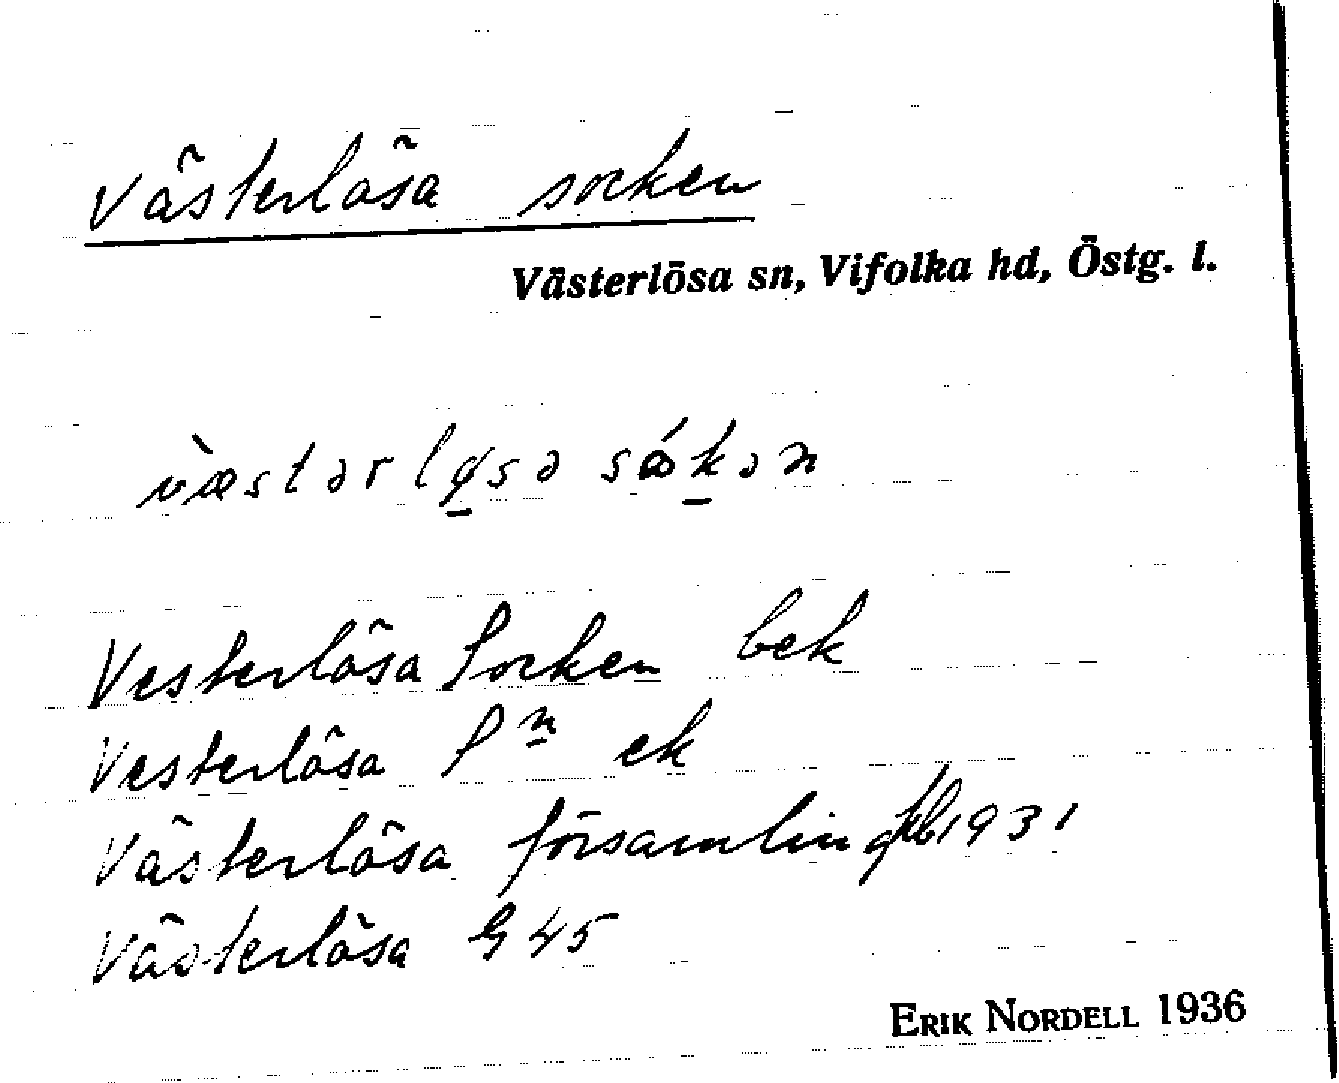 Västerlösa socken
Västerlösa sn, Vifolka hd, Östg. l.
væstərløsə sókən
Vesterlösa Socken bek
Vesterlösa Sn ek
Västerlösa församling 1931
Västerlösa G 45
ERIK NORDELL 1936